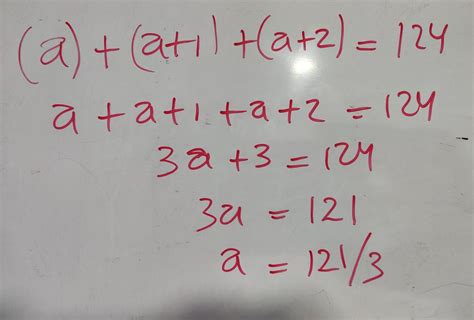 (a) + (a+1) + (a+2) = 124
a + a+1 + a+2 = 124
3a + 3 = 124
3a = 121
a = 121/3